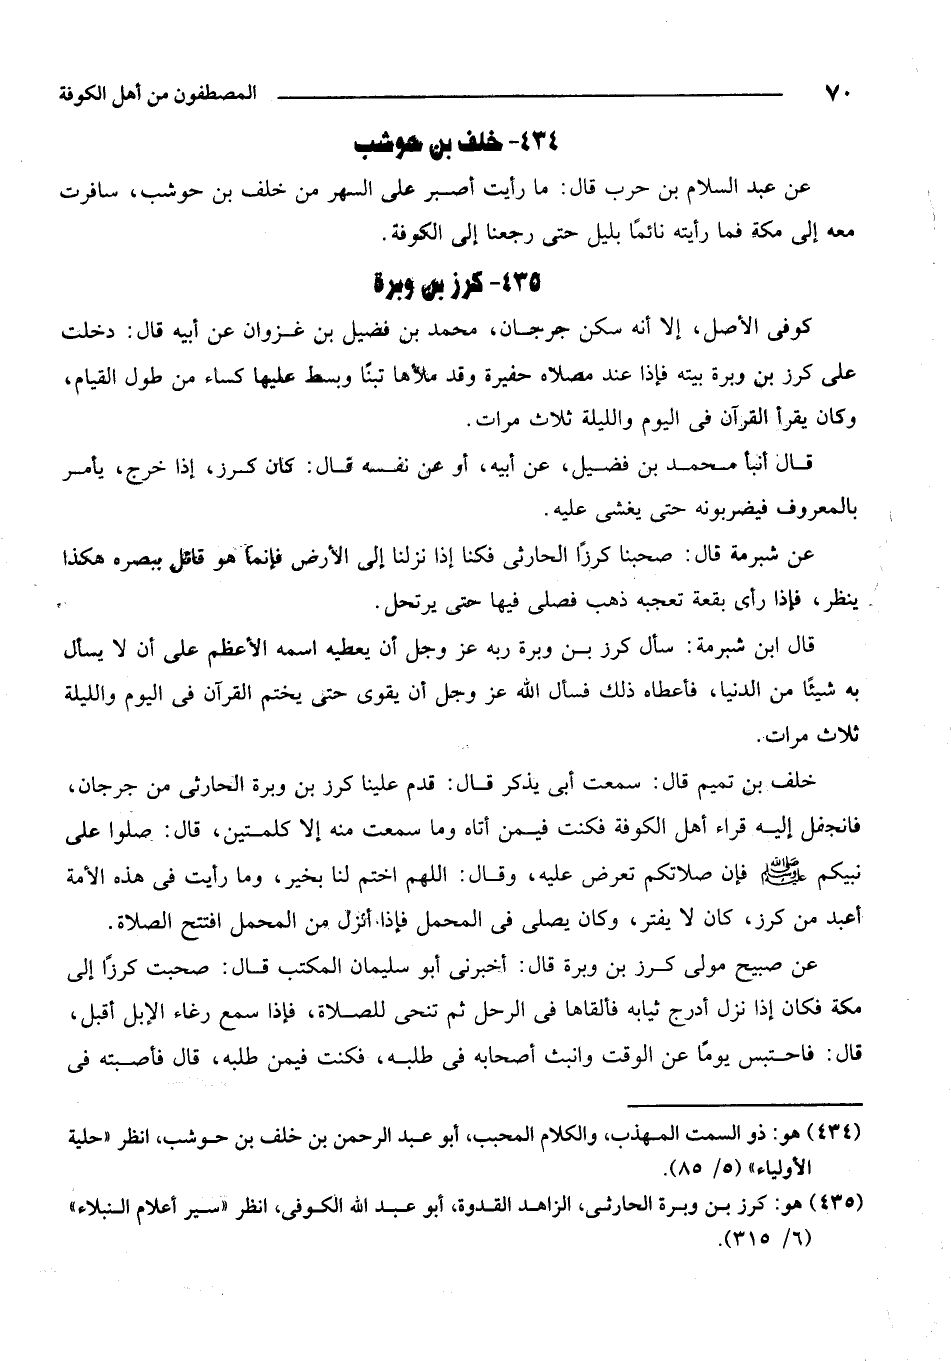 ٧٠ المصطفون من أهل الكوفة
٤٣٤- خلف بن حوشب
عن عبد السلام بن حرب قال: ما رأيت أصبر على السهر من خلف بن حوشب، سافرت
معه إلى مكة فما رأيته نائمًا بليل حتى رجعنا إلى الكوفة.
٤٣٥- كرز بن وبرة
كوفى الأصل، إلا أنه سكن جرجان، محمد بن فضيل بن غزوان عن أبيه قال: دخلت
على كرز بن وبرة بيته فإذا عند مصلاه حفيرة وقد ملأها تبنًا وبسط عليها كساء من طول القيام،
وكان يقرأ القرآن فى اليوم والليلة ثلاث مرات.
قال أنبأ محمد بن فضيل، عن أبيه، أو عن نفسه قال: كان كرز، إذا خرج، يأمر
بالمعروف فيضربونه حتى يغشى عليه.
عن شبرمة قال: صحبنا كرزًا الحارثى فكنا إذا نزلنا إلى الأرض فإنما هو قائل ببصره هكذا
ينظر، فإذا رأى بقعة تعجبه ذهب فصلى فيها حتى يرتحل.
قال ابن شبرمة: سأل كرز بن وبرة ربه عز وجل أن يعطيه اسمه الأعظم على أن لا يسأل
به شيئًا من الدنيا، فأعطاه ذلك فسأل الله عز وجل أن يقوى حتى يختم القرآن فى اليوم والليلة
ثلاث مرات.
خلف بن تميم قال: سمعت أبى يذكر قال: قدم علينا كرز بن وبرة الحارثى من جرجان،
فانجفل إليه قراء أهل الكوفة فكنت فيمن أتاه وما سمعت منه إلا كلمتين، قال: صلوا على
نبيكم ﷺ فإن صلاتكم تعرض عليه، وقال: اللهم اختم لنا بخير، وما رأيت فى هذه الأمة
أعبد من كرز، كان لا يفتر، وكان يصلى فى المحمل فإذا أنزل من المحمل افتتح الصلاة.
عن صبيح مولى كرز بن وبرة قال: أخبرنى أبو سليمان المكتب قال: صحبت كرزًا إلى
مكة فكان إذا نزل أدرج ثيابه فألقاها فى الرحل ثم تنحى للصلاة، فإذا سمع رغاء الإبل أقبل،
قال: فاحتبس يومًا عن الوقت وانبث أصحابه فى طلبه، فكنت فيمن طلبه، قال فأصبته فى
(٤٣٤) هو: ذو السمت المهذب، والكلام المحبب، أبو عبد الرحمن بن خلف بن حوشب، انظر «حلية
الأولياء» (٥/ ٨٥).
(٤٣٥) هو: كرز بن وبرة الحارثى، الزاهد القدوة، أبو عبد الله الكوفى، انظر «سير أعلام النبلاء»
(٦/ ٣١٥).